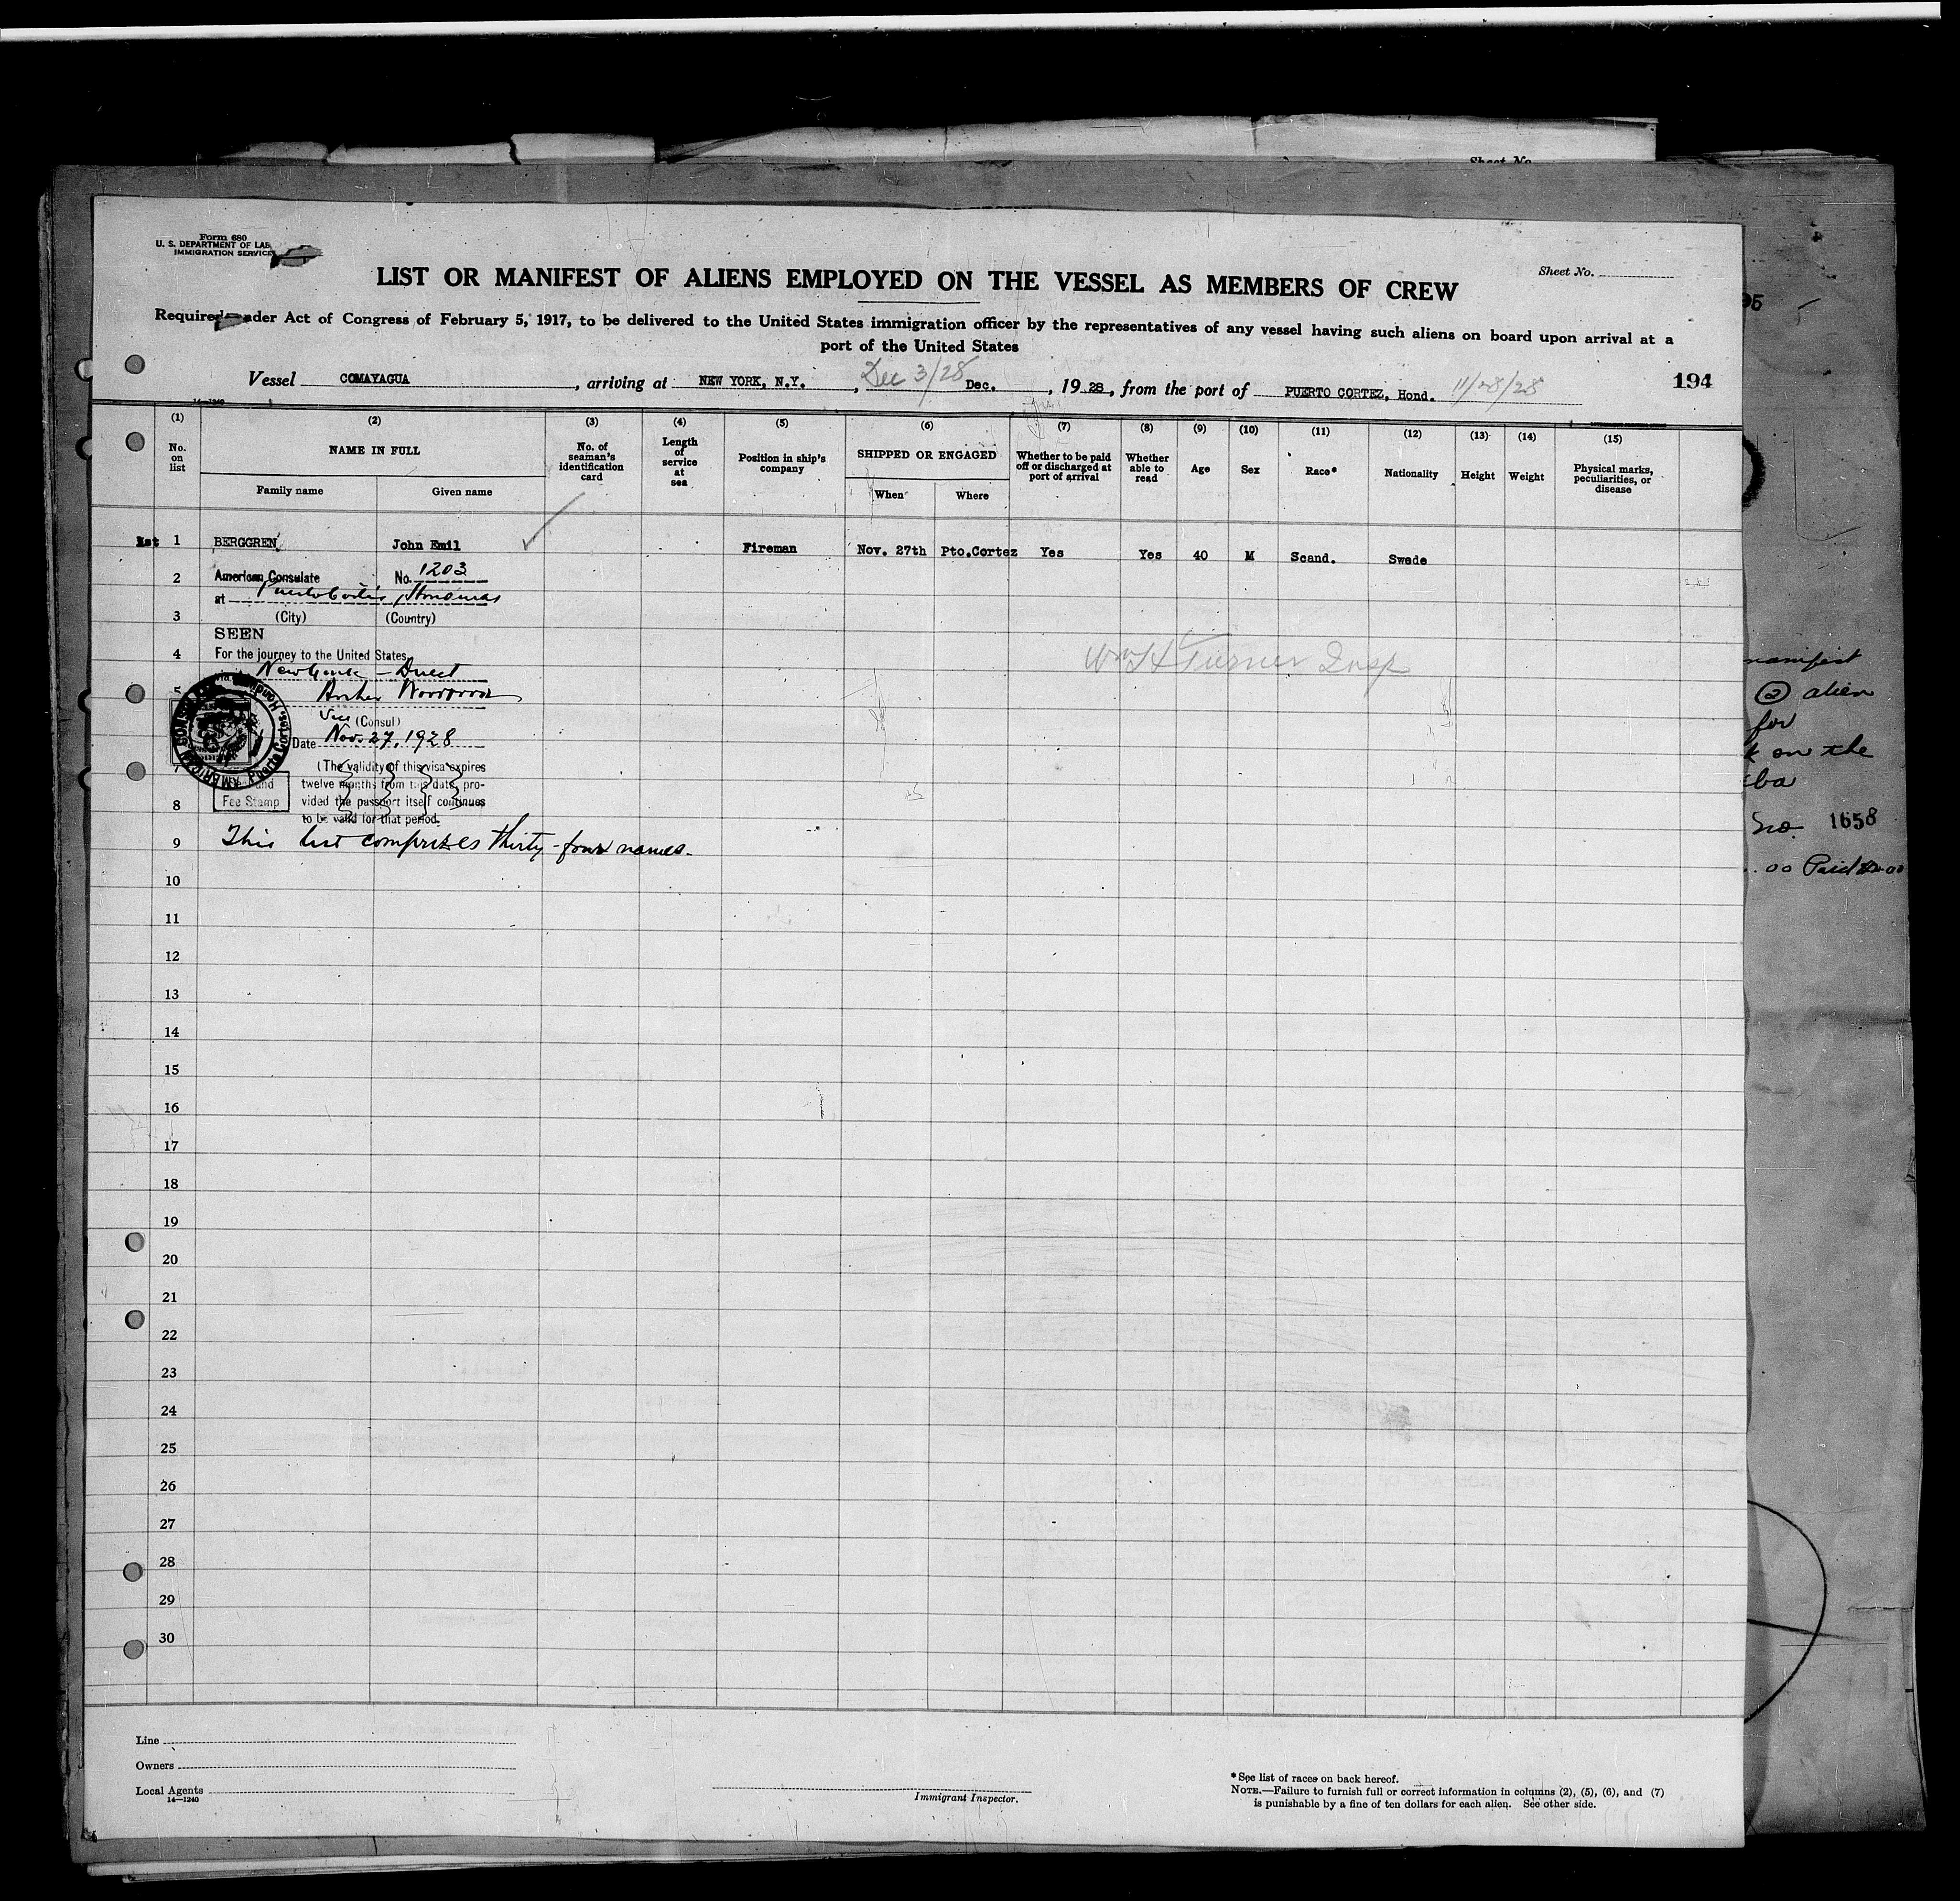 Sheet No.
Form 680
U. S. DEPARTMENT OF LAB
IMMIGRATION SERVICE
Sheet No.
LIST OR MANIFEST OF ALIENS EMPLOYED ON THE VESSEL AS MEMBERS OF CREW
Required under Act of Congress of February 5, 1917, to be delivered to the United States immigration officer by the representatives of any vessel having such aliens on board upon arrival at a
port of the United States
Vessel COMAYAGUA, arriving at NEW YORK, N.Y., Dec 3/28 Dec., 1928, from the port of PUERTO CORTEZ, Hond. 11/28/28
194
14—1240
(1) (2) (3) (4) (5) (6) (7) (8) (9) (10) (11) (12) (13) (14) (15)
No. on list
NAME IN FULL
Family name
Given name
No. of seaman's identification card
Length of service at sea
Position in ship's company
SHIPPED OR ENGAGED
When
Where
Whether to be paid off or discharged at port of arrival
Whether able to read
Age
Sex
Race*
Nationality
Height
Weight
Physical marks, peculiarities, or disease
1 BERGGREN John Emil Fireman Nov. 27th Pto.Cortez Yes Yes 40 M Scand. Swede
2 American Consulate No. 1203
at Puerto Cortes, Honduras
3 (City) (Country)
SEEN
4 For the journey to the United States
Wm H Turner Insp
New York - Direct
5
Vice (Consul)
AMERICAN Puerto Cortes, Honduras
Date Nov. 27, 1928
(The validity of this visa expires
twelve months from this date, pro-
8 Fee Stamp vided the passport itself continues
to be valid for that period.
9 This list comprizes thirty-four names.
10
11
12
13
14
15
16
17
18
19
20
21
22
23
24
25
26
27
28
29
30
Line
Owners
Local Agents
14—1240
Immigrant Inspector.
*See list of races on back hereof.
NOTE.—Failure to furnish full or correct information in columns (2), (5), (6), and (7)
is punishable by a fine of ten dollars for each alien. See other side.
95
manifest
② alien
for
on the
No. 1658
.00 Paid